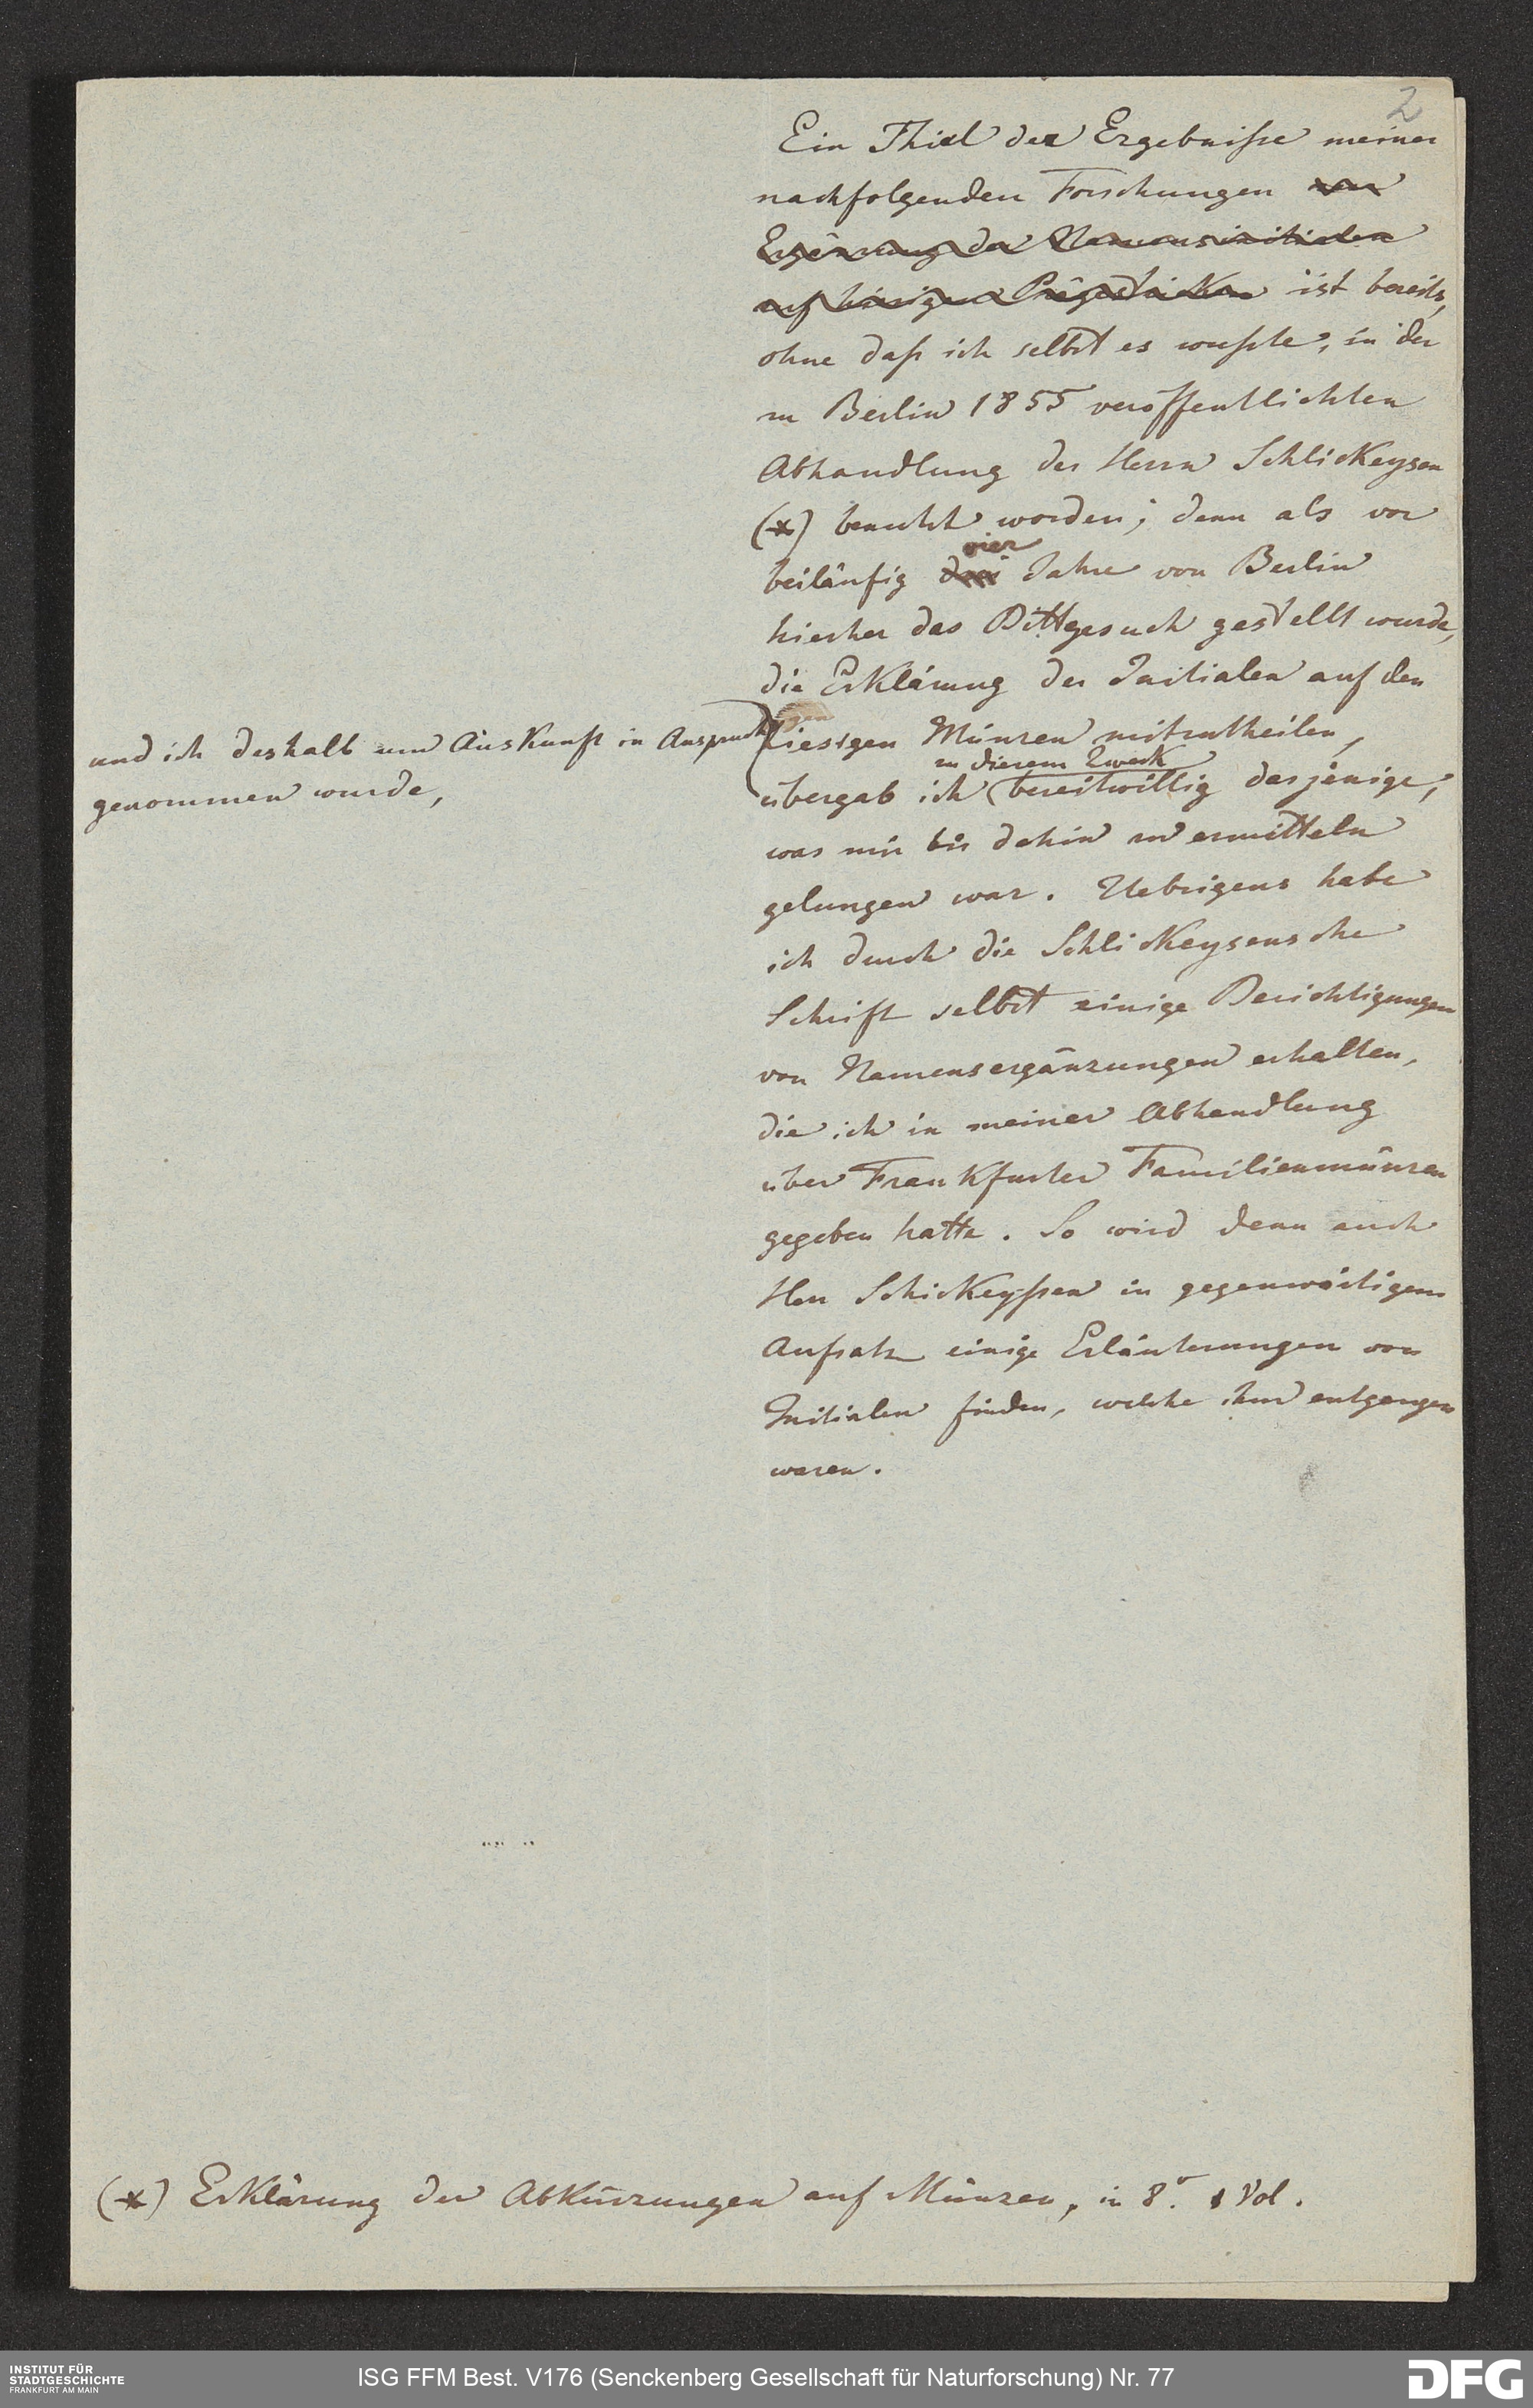 2
Ein Thiel der Ergebniße meiner
nachfolgenden Forschungen von
Ergänzung der Namensinitialen
auf hiesigen Prägestücken ist bereits,
ohne daß ich selbst es wußte, in der
zu Berlin 1855 veröffentlichten
Abhandlung des Herrn Schlickeysen
(*) benutzt worden; denn als vor
vier
beiläufig drei Jahre von Berlin
hierher das Bittgesuch gestellt wurde,
die Erklärung der Initialen auf den
hiesigen Münzen mitzutheilen,
und ich deshalb um Auskunft in Anspruch
genommen wurde,
zu diesem Zweck
übergab ich bereitwillig dasjenige,
was mir bis dahin zu ermitteln
gelungen war. Uebrigens habe
ich durch die Schlickeysensche
Schrift selbst einige Berichtigungen
von Namensergänzungen erhalten,
die ich in meiner Abhandlung
über Frankfurter Familienmünzen
gegeben hatte. So wird denn auch
Herr Schickeyßen in gegenwärtigem
Aufsatz einige Erläuterungen von
Initialen finden, welche ihm entgangen
waren.
(*) Erklärung der Abkürzungen auf Münzen, in 8º. Vol.
INSTITUT FÜR
STADTGESCHICHTE
FRANKFURT AM MAIN
ISG FFM Best. V176 (Senckenberg Gesellschaft für Naturforschung) Nr. 77
DFG